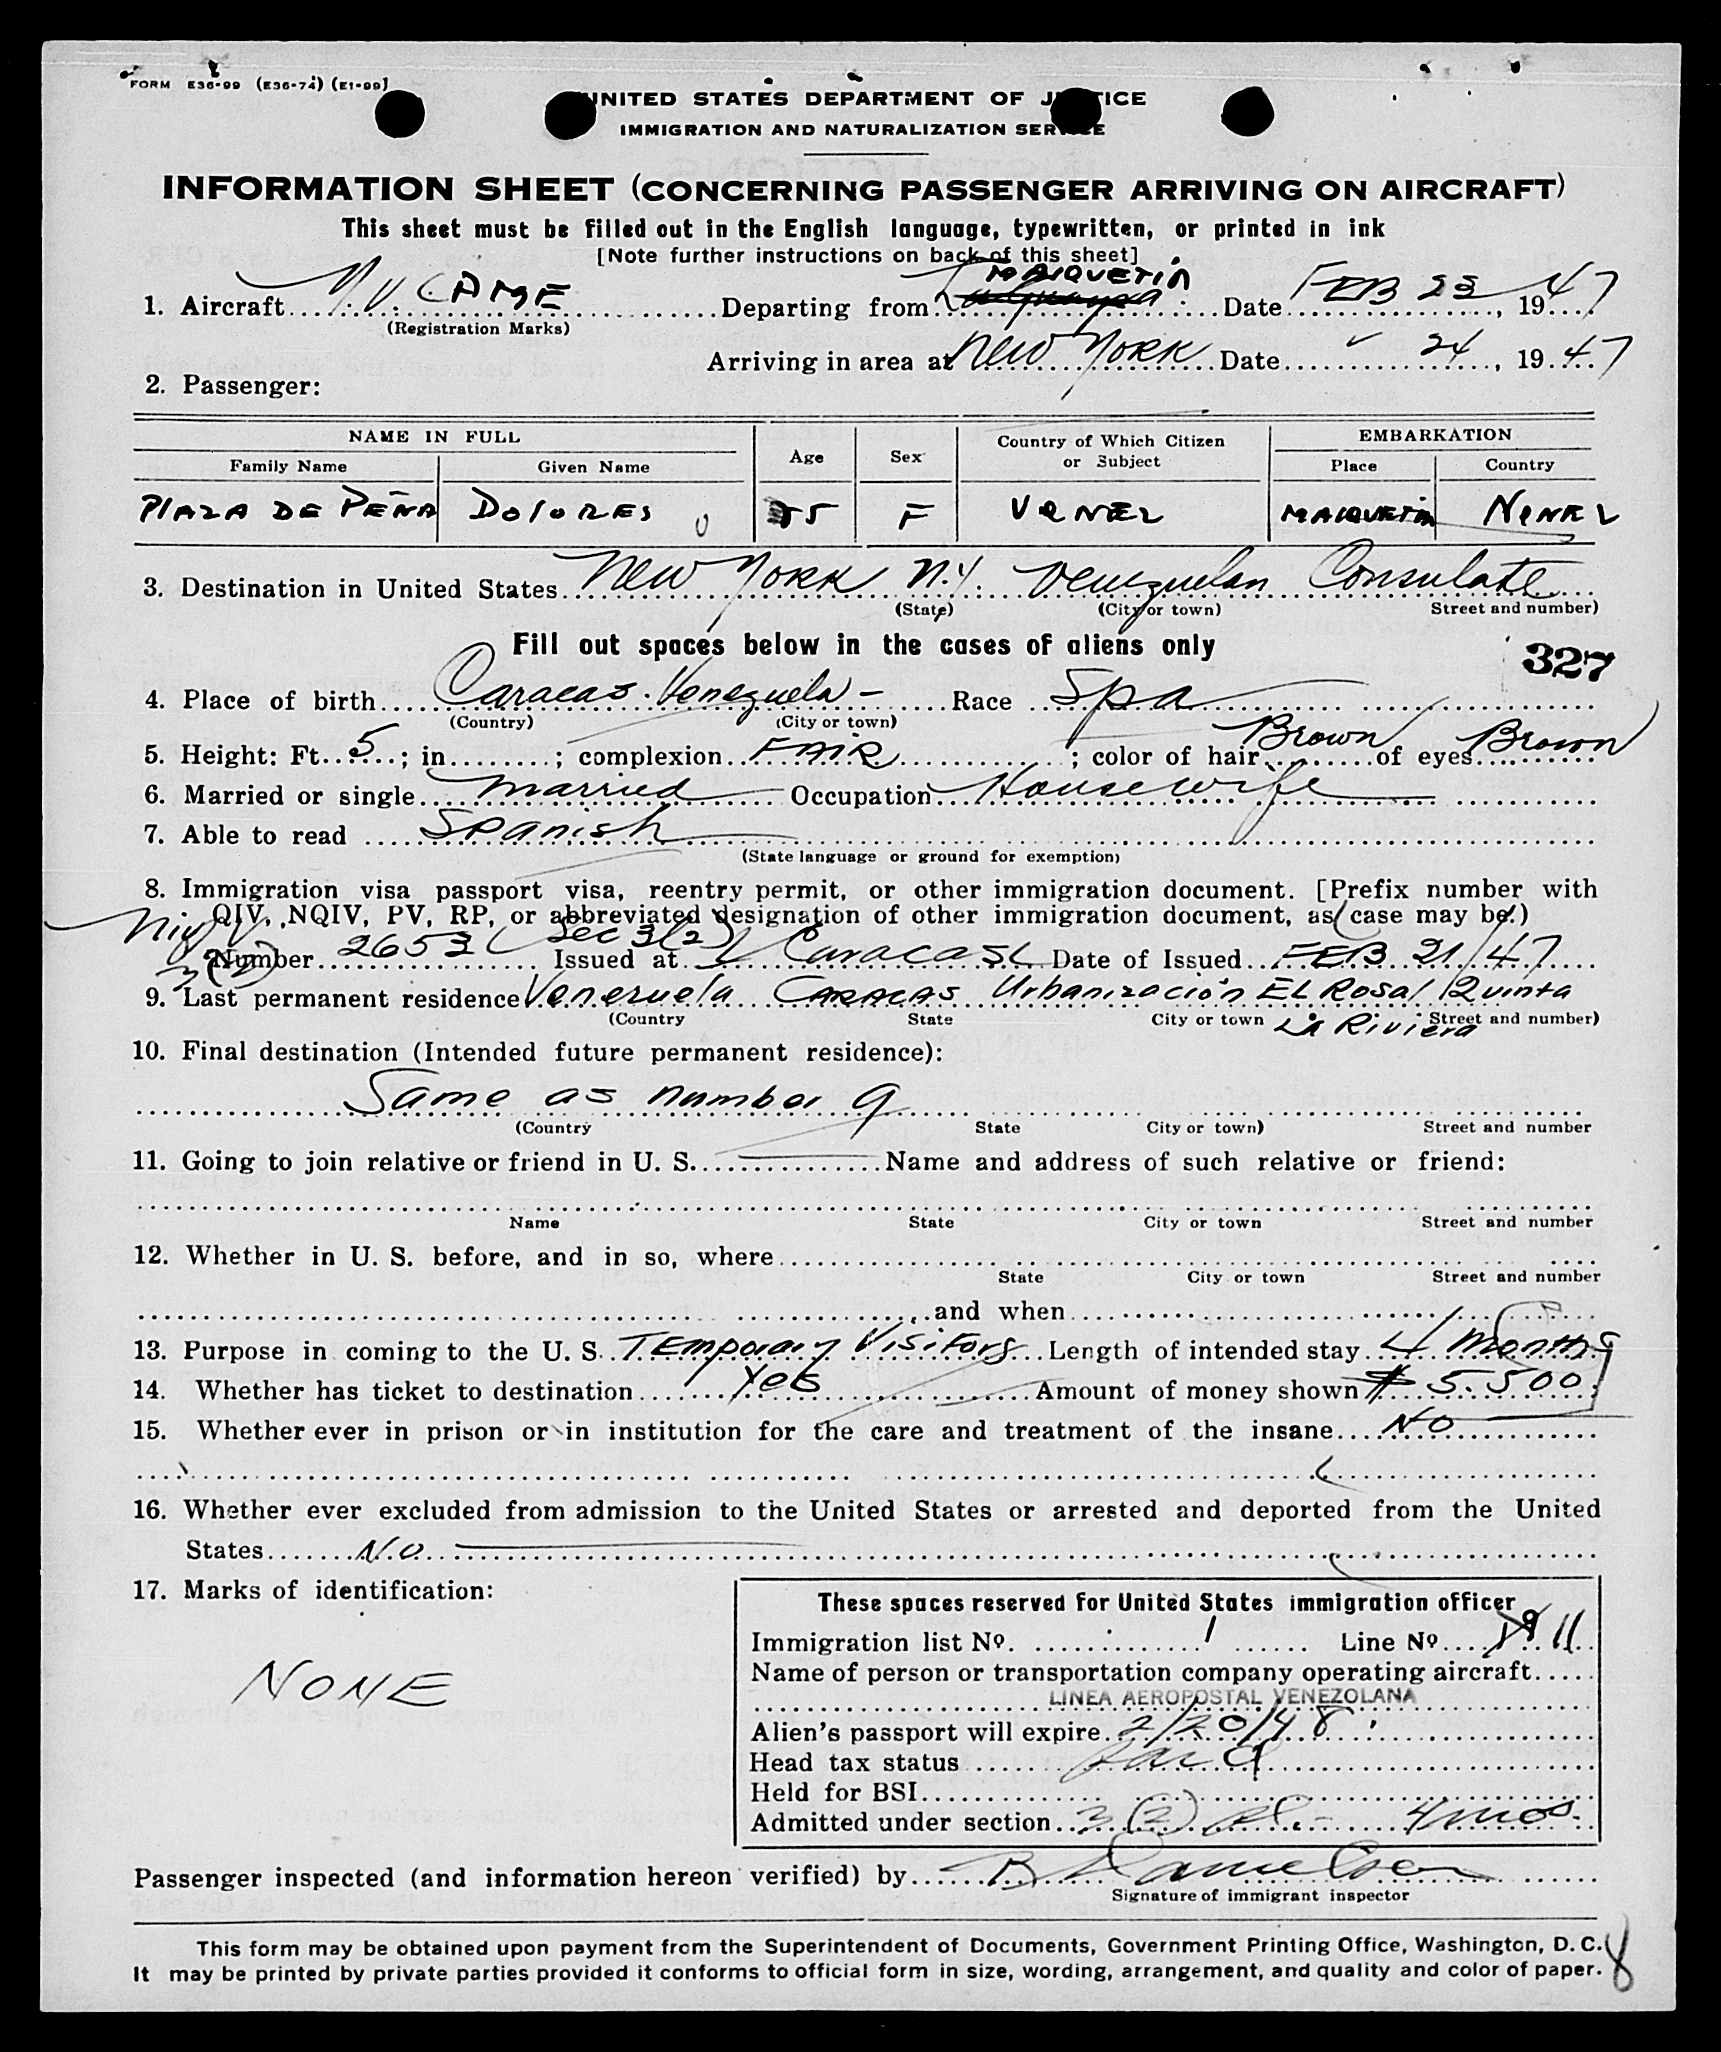 FORM E36-99 (E36-74) (E1-99)
UNITED STATES DEPARTMENT OF JUSTICE
IMMIGRATION AND NATURALIZATION SERVICE
INFORMATION SHEET (CONCERNING PASSENGER ARRIVING ON AIRCRAFT)
This sheet must be filled out in the English language, typewritten, or printed in ink
[Note further instructions on back of this sheet]
MAIQUETIA
1. Aircraft YV CAME Departing from Date FEB 23, 1947
(Registration Marks)
Arriving in area at New York Date " 24, 1947
2. Passenger:
NAME IN FULL Age Sex Country of Which Citizen or Subject EMBARKATION
Family Name Given Name Place Country
PLAZA DE PEÑA DOLORES 55 F VENEZ MAIQUETIA VENEZ
3. Destination in United States New York N.Y. Venezuelan Consulate
(State) (City or town) Street and number)
Fill out spaces below in the cases of aliens only
327
4. Place of birth Caracas. Venezuela - Race Spa
(Country) (City or town)
5. Height: Ft. 5; in ; complexion FAIR; color of hair Brown of eyes Brown
6. Married or single married Occupation Housewife
7. Able to read Spanish
(State language or ground for exemption)
8. Immigration visa passport visa, reentry permit, or other immigration document. [Prefix number with
QIV, NQIV, PV, RP, or abbreviated designation of other immigration document, as case may be.)
3(2) Number 2653 (Sec 3(2)) Issued at Caracas Date of Issued FEB 21/47
9. Last permanent residence Venezuela CARACAS Urbanización EL Rosal Quinta
(Country State City or town Street and number)
LA Riviera
10. Final destination (Intended future permanent residence):
Same as number 9
(Country State City or town) Street and number
11. Going to join relative or friend in U. S. Name and address of such relative or friend:
Name State City or town Street and number
12. Whether in U. S. before, and in so, where
State City or town Street and number
and when
13. Purpose in coming to the U. S. Temporary Visitors Length of intended stay 4 months
14. Whether has ticket to destination Yes Amount of money shown $ 5.500
15. Whether ever in prison or in institution for the care and treatment of the insane No
16. Whether ever excluded from admission to the United States or arrested and deported from the United
States No
17. Marks of identification:
NONE
These spaces reserved for United States immigration officer
Immigration list No. 1 Line No. 11
Name of person or transportation company operating aircraft
LINEA AEROPOSTAL VENEZOLANA
Alien's passport will expire 2/20/48.
Head tax status Paid
Held for BSI
Admitted under section 3(2) 4 mos.
Passenger inspected (and information hereon verified) by
Signature of immigrant inspector
This form may be obtained upon payment from the Superintendent of Documents, Government Printing Office, Washington, D. C.
It may be printed by private parties provided it conforms to official form in size, wording, arrangement, and quality and color of paper.
8